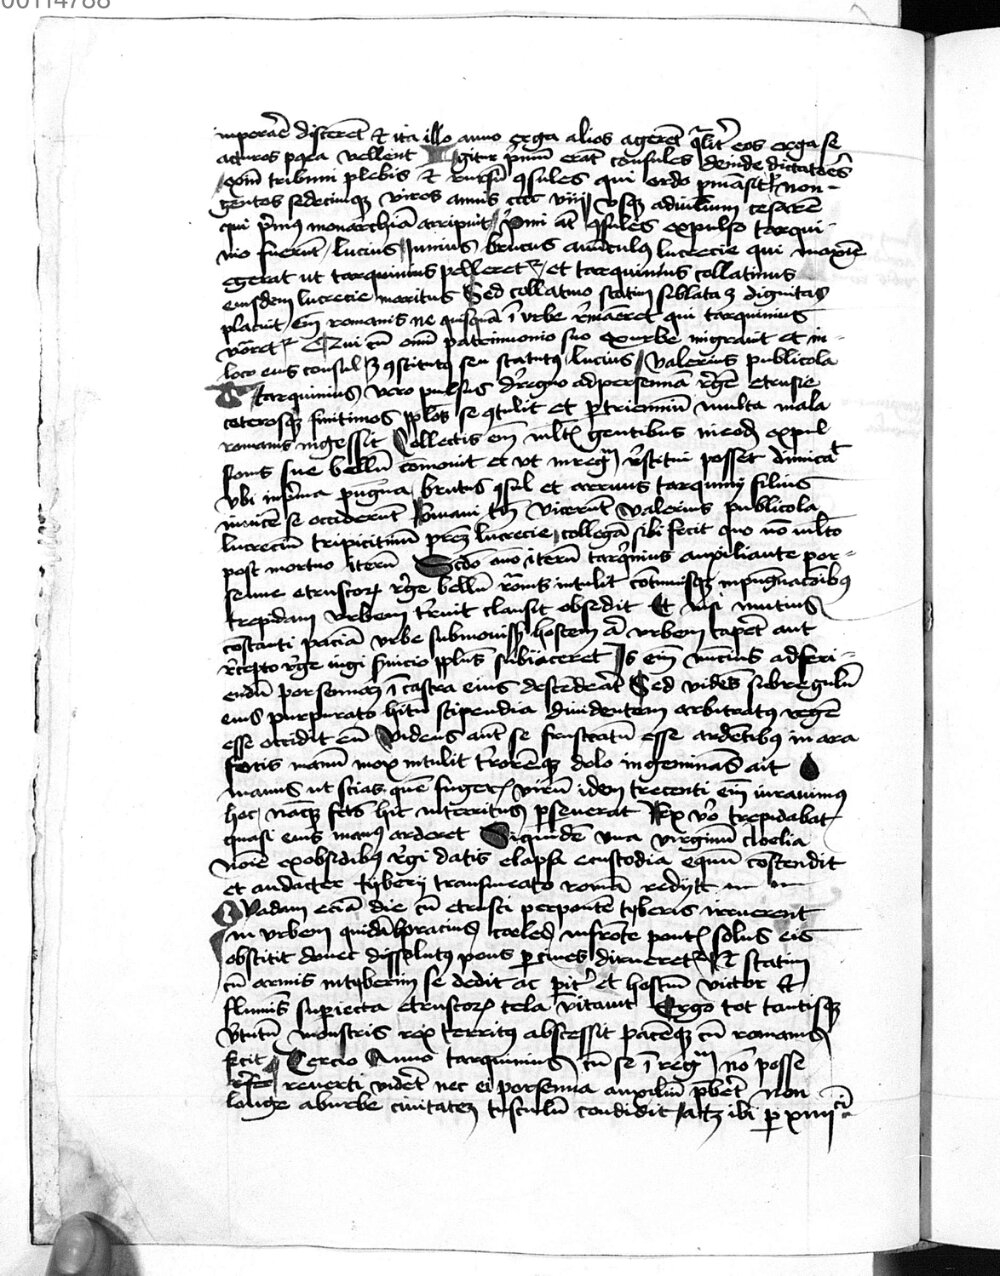 00114788
imperare discerent et ita illo anno erga alios agerent qualiter eos erga se
acturos postea vellent Igitur primum erant consules deinde dictatores
tribuni plebis et rursum consules qui ordo permansit per non-
gentos sedecimque viros annis cccc viiij usque ad iulium cesarem
qui primus monarchiam arripuit primi autem consules expulso tarqui-
nio fuerunt lucius iunius brutus avunculus lucrecie qui maxime
egerat ut tarquinius pelleretur et tarquinius collatinus
eiusdem lucrecie maritus Sed collatino statim sublata est dignitas
placuit enim romanis ne quisquam in urbe remaneret qui tarquinius
vocaretur Qui cum omni patrimonio suo ex urbe migravit et in
loco eius consul est constitutus seu statutus lucius valerius publicola
tarquinius vero pulsus de regno ad persenna regem etrusie
ceterosque finitimos populos se contulit et per triennium multa mala
romanis ingessit Collectis enim multis gentibus in eodem expul
sionis sue bellum commovit et ut in regnum restitui posset dimicat
ubi in prima pugna brutus consul et arruns tarquinij filius
invicem se occiderunt Romani tamen vicerunt valerius publicola
lucrecium tripicitinum patrem lucrecie collegam sibi fecit quo non multo
post mortuo iterum Secundo anno iterum tarquinius auxiliante por-
senne etruscorum rege bellum romanis intulit
trepidam urbem terruit clausit obsedit Et nisi mutius
constanti paciencia urbe submovisset hostem aut urbem caperet aut
recepto rege iugi servicio populus subiaceret Is enim mucius ad feri-
endum porsennam in castra eius descenderat Sed videns subregulum
eius purpurato habitu stipendia dividentem arbitratus regem
esse occidit eum Videns autem se frustratum esse ardentibus in ara
focis manum mox intulit terroremque dolo ingeminans ait
manus ut scias quem fugeris virum idem trecenti enim iuravimus
hoc namque fatus hic interritus perseverat Rex vero trepidabat
quasi eius manus arderet Siquidem una virginum cloelia
nomine ex obsidibus regi datis elapsa e custodia equum conscendit
et audacter tyberij transmeato romam redijt
Quadam eciam die cum etrusci per pontem tyberis irruerent
in urbem quidam horacius cocles in fronte pontis solus eis
obstitit donec dissolutus pons per cives dirueretur Et statim
cum armis in tyberim se dedit ac periter et hostium victor et
fluminis superiecta etruscorum tela vitavit Ergo tot tantisque
virtutum monstris rex territus abscessit pacemque cum romanis
fecit Tercio Anno tarquinius cum se in regnum non posse
reverti videret nec ei porsenna auxilium preberet non
longe ab urbe civitatem tusculum condidit atque ibi per xiiij